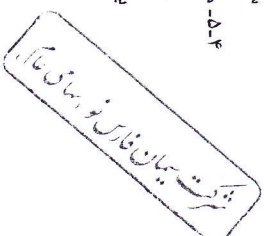 ۵-۴-
شرکت سیمان فارس نو «سهامی عام»